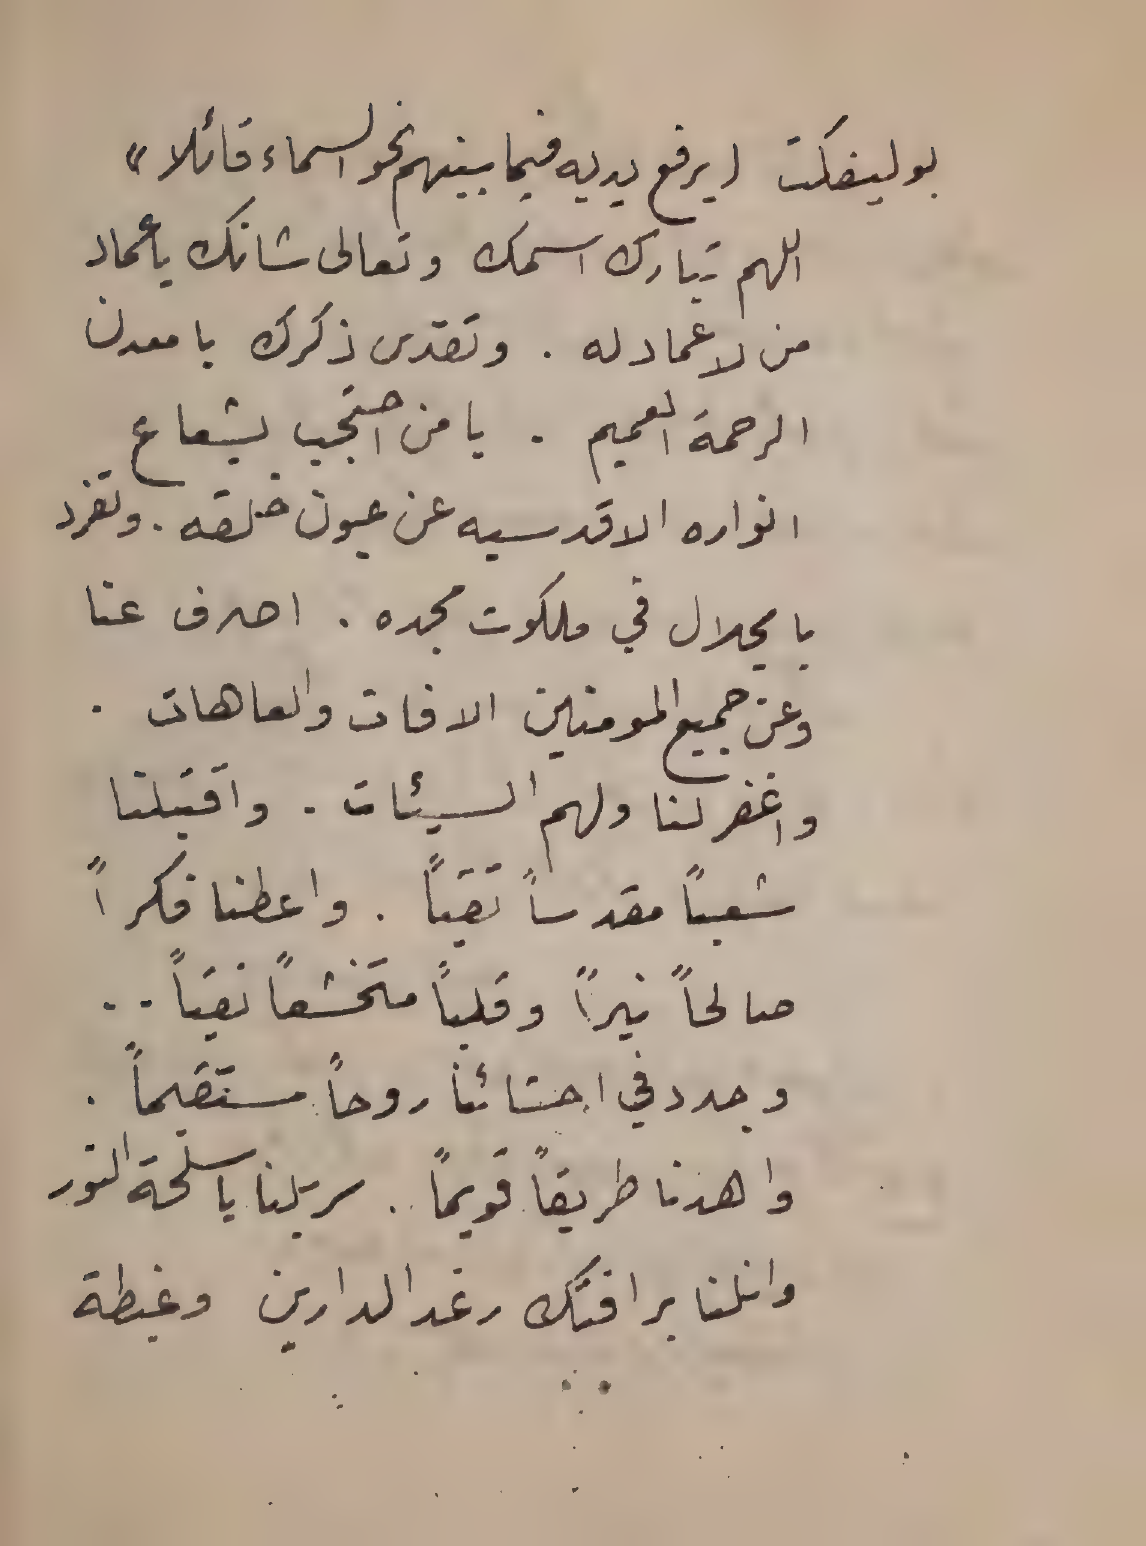 بوليفكت (يرفع يديه فيما بينهم نحو السماء قائلا»
اللهم تبارك اسمك وتعالى شانك ياعماد
من لا عماد له . وتقدس ذكرك يا معدن
الرحمة العميم . يا من احتجب بشعاع
انواره الاقدسيه عن عيون خلقه . وتفرد
بالجلال في ملكوت مجده . اصرف عنا
وعن جميع المومنين الافات والعاهات .
واغفر لنا ولهم السيئات . واقتبلنا
شعباً مقدساً تقياً . واعطنا فكراً
صالحاً نيراً وقلباً متخشعاً نقياً . .
وجدد في احشائنا روحاً مستقيماً .
واهدنا طريقاً قويماً . سربلنا باسلحة النور
وانلنا برافتك رغد الدارين وغبطة